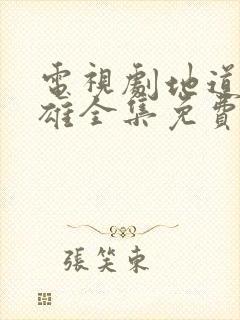 電視劇地道
雄全集免費
張笑東